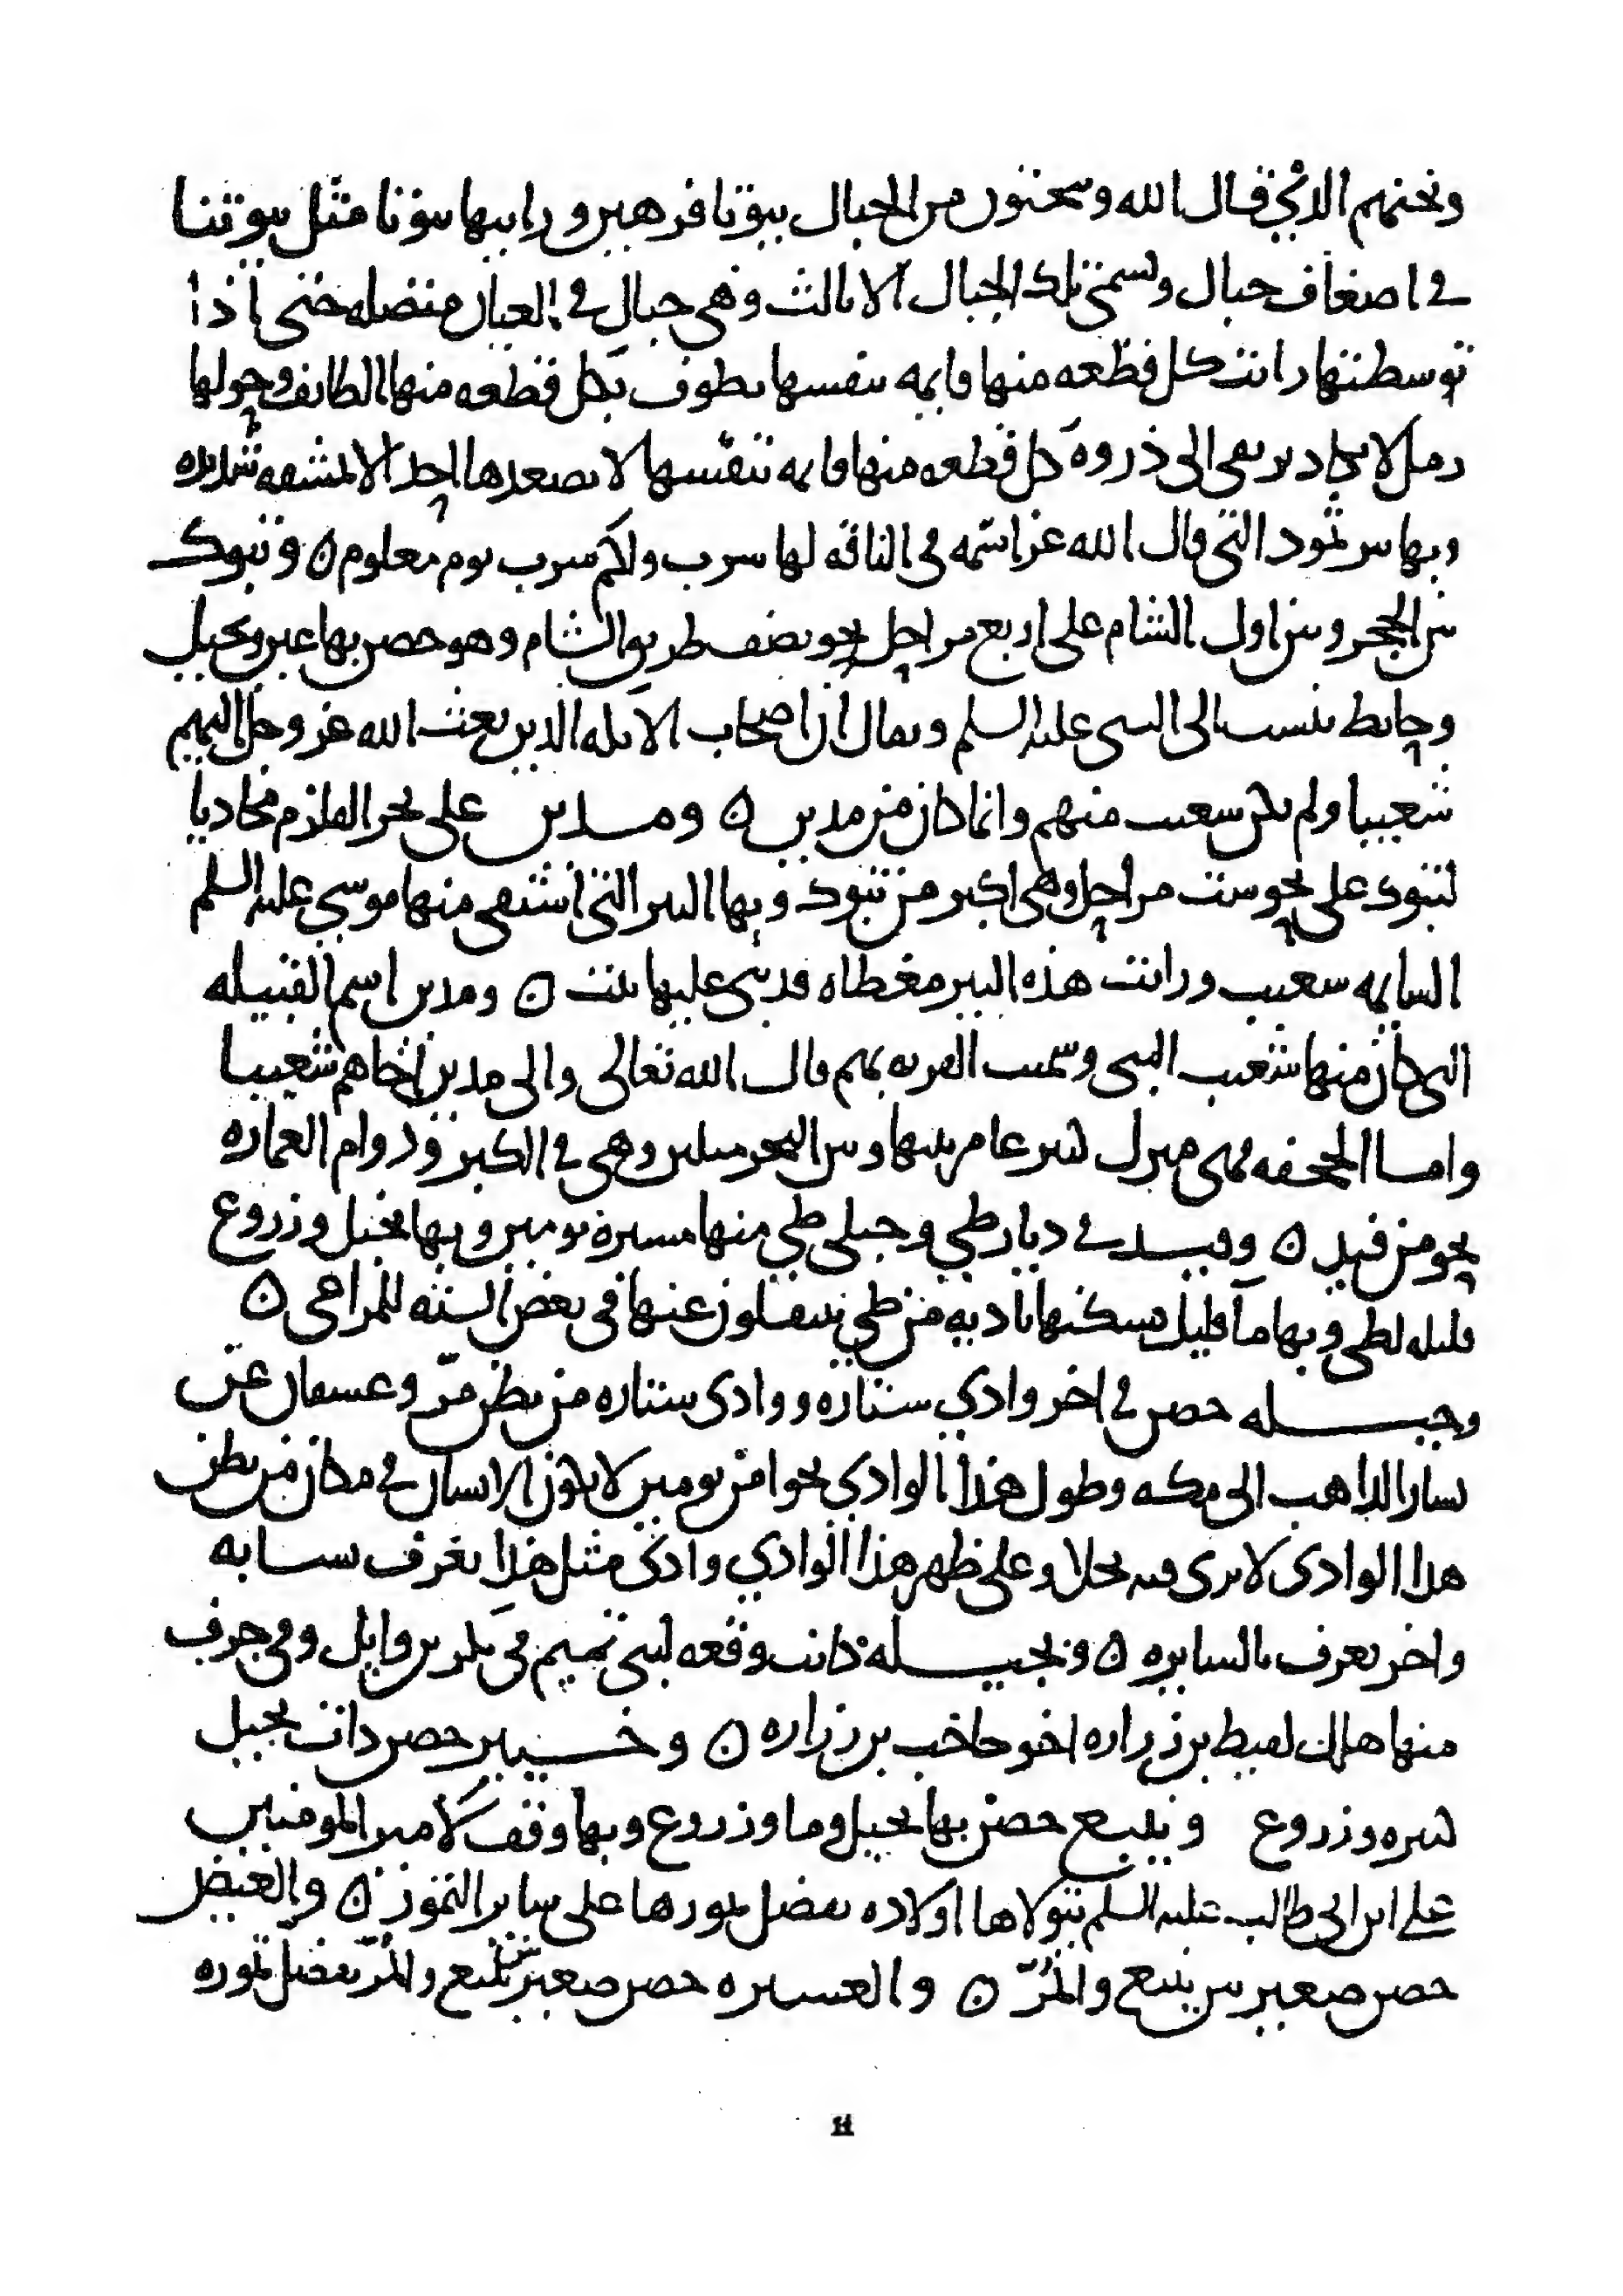 ونحتهم الذي قال الله وتنحتون من الجبال بيوتا فرهين ورايتها بيوتا مثل بيوتنا
في اضعاف جبال وتسمى تلك الجبال الاثالث وهي جبال في العيان متصله حتى اذا
توسطتها رايت كل قطعه منها قايمه بنفسها يطوف بكل قطعه منها الطايف وحولها
رمل لا يكاد يرتقى الى ذروه كل قطعه منها قايمه بنفسها لا يصعدها احد الا بمشقه شديده
وبها بير ثمود التي قال الله عز اسمه في الناقه لها شرب ولكم شرب يوم معلوم ن وتبوك
بين الحجر وبين اول الشام على اربع مراحل نحو نصف طريق الشام وهو حصن بها عين ونخيل
وحايط ينسب الى النبي عليه السلم ويقال ان اصحاب الايكه الذين بعث الله عز وجل اليهم
شعيبا ولم يكن شعيب منهم وانما كان من مدين ن ومدين على بحر القلزم محاديا
لتبوك على نحو ست مراحل وهي اكبر من تبوك وبها البير التي استقى منها موسى عليه السلم
لسايمه شعيب ورايت هذه البير مغطاه قد بني عليها بيت ن ومدين اسم القبيله
التي كان منها شعيب النبي وسميت القريه بهم قال الله تعالى والى مدين اخاهم شعيبا
واما الجحفه فهي منزل عامر بينها وبين البحر ميلين وهي في الكبر ودوام العماره
نحو من فيد ن وفيد في ديار طي وجبلي طي منها مسيرة يومين وبها نخيل وزروع
قليله لطي وبها ما قليل يسكنها باديه من طي ينتقلون عنها في بعض السنه للمراعي ن
وجبله حصن في اخر وادي ستاره ووادي ستاره من بطن مر وعسفان عن
يسار الذاهب الى مكه وطول هذا الوادي نحوا من يومين لا يكون الانسان في مكان من بطن
هذا الوادي لا يرى فيه نخلا وعلى ظهر هذا الوادي وادي مثل هذا يعرف بسايه
واخر يعرف بالسايره ن وبجبله كانت وقعه لبني تميم في بكر بن وايل وفي جرف
منها هلك لقيط بن زراره اخو حاجب بن زراره ن وخيبر حصن ذات نخيل
كثيره وزروع وينبع حصن بها نخيل وما وزروع وبها وقف لامير المومنين
علي ابن ابي طالب عليه السلم يتولاها اولاده يفضل تمورها على ساير التمور ن والعيص
حصن صغير بين ينبع والمر ن والعشيره حصن صغير بين ينبع والمر يفضل تموره
١٤